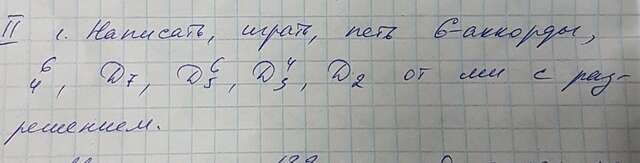 II 1. Написать, играть, петь 6-аккорды,
6/4, Д7, Д6/5, Д4/3, Д2 от ми с раз-
решением.